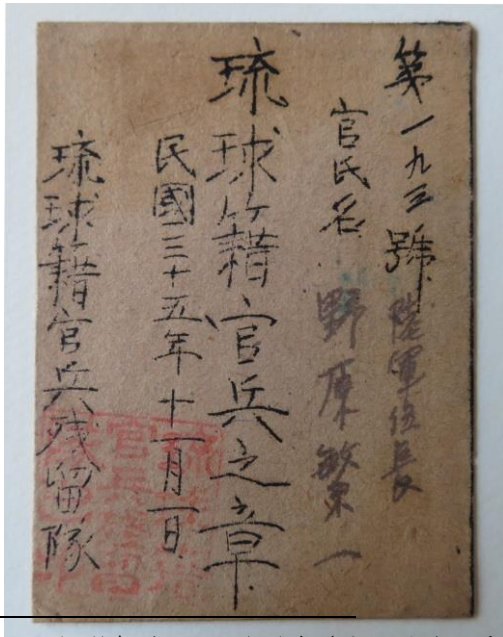 第一九三號
陸軍伍長
官氏名
野原敏一
琉球籍官兵之章
民國三十五年十一月一日
琉球籍官兵残留隊